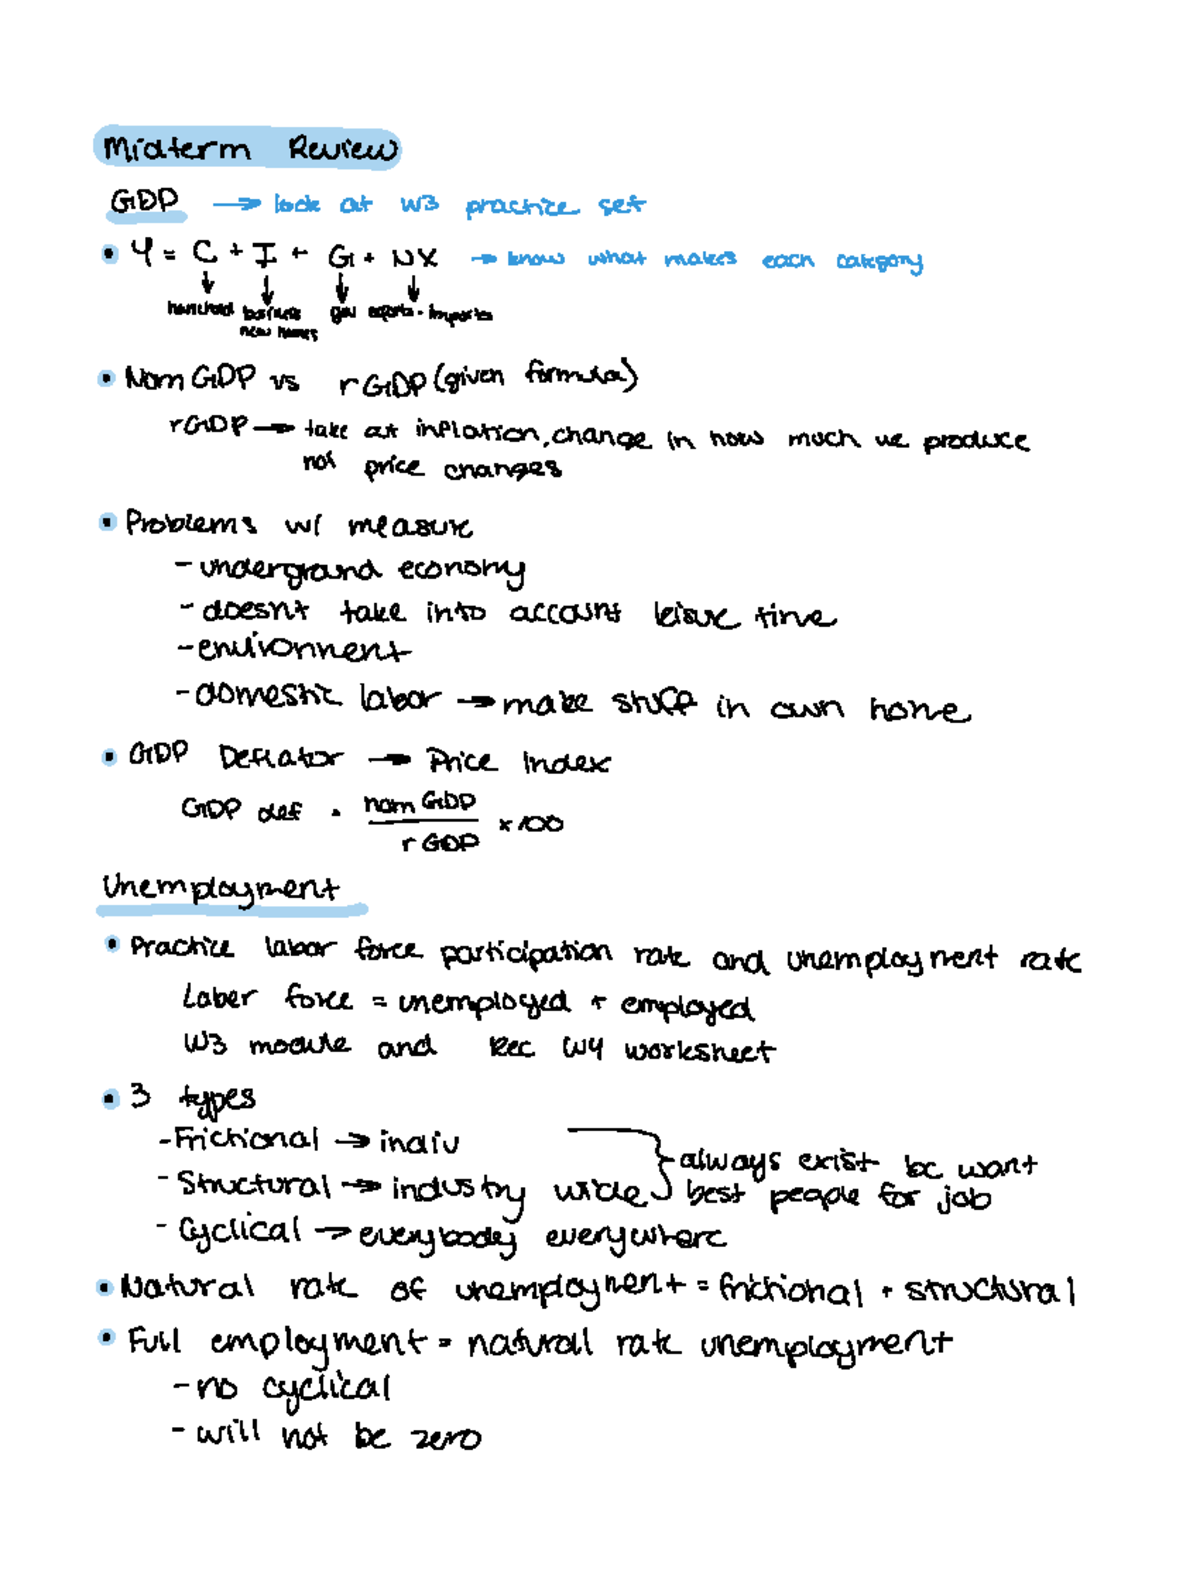 Midterm Review
GDP → look at W3 practice set
• Y = C + I + G + NX → know what makes each category
household business gov exports - imports
new homes
• Nom GDP vs rGDP (given formula)
rGDP → take out inflation, change in how much we produce
not price changes
• Problems w/ measure
- underground economy
- doesn't take into account leisure time
- environment
- domestic labor → make stuff in own home
• GDP Deflator → Price Index
GDP def = nom GDP / rGDP × 100
Unemployment
• Practice labor force participation rate and unemployment rate
Labor force = unemployed + employed
W3 module and Rec W4 worksheet
• 3 types
- Frictional → indiv
- Structural → industry wide } always exist bc want best people for job
- Cyclical → everybody everywhere
• Natural rate of unemployment = frictional + structural
• Full employment = natural rate unemployment
- no cyclical
- will not be zero